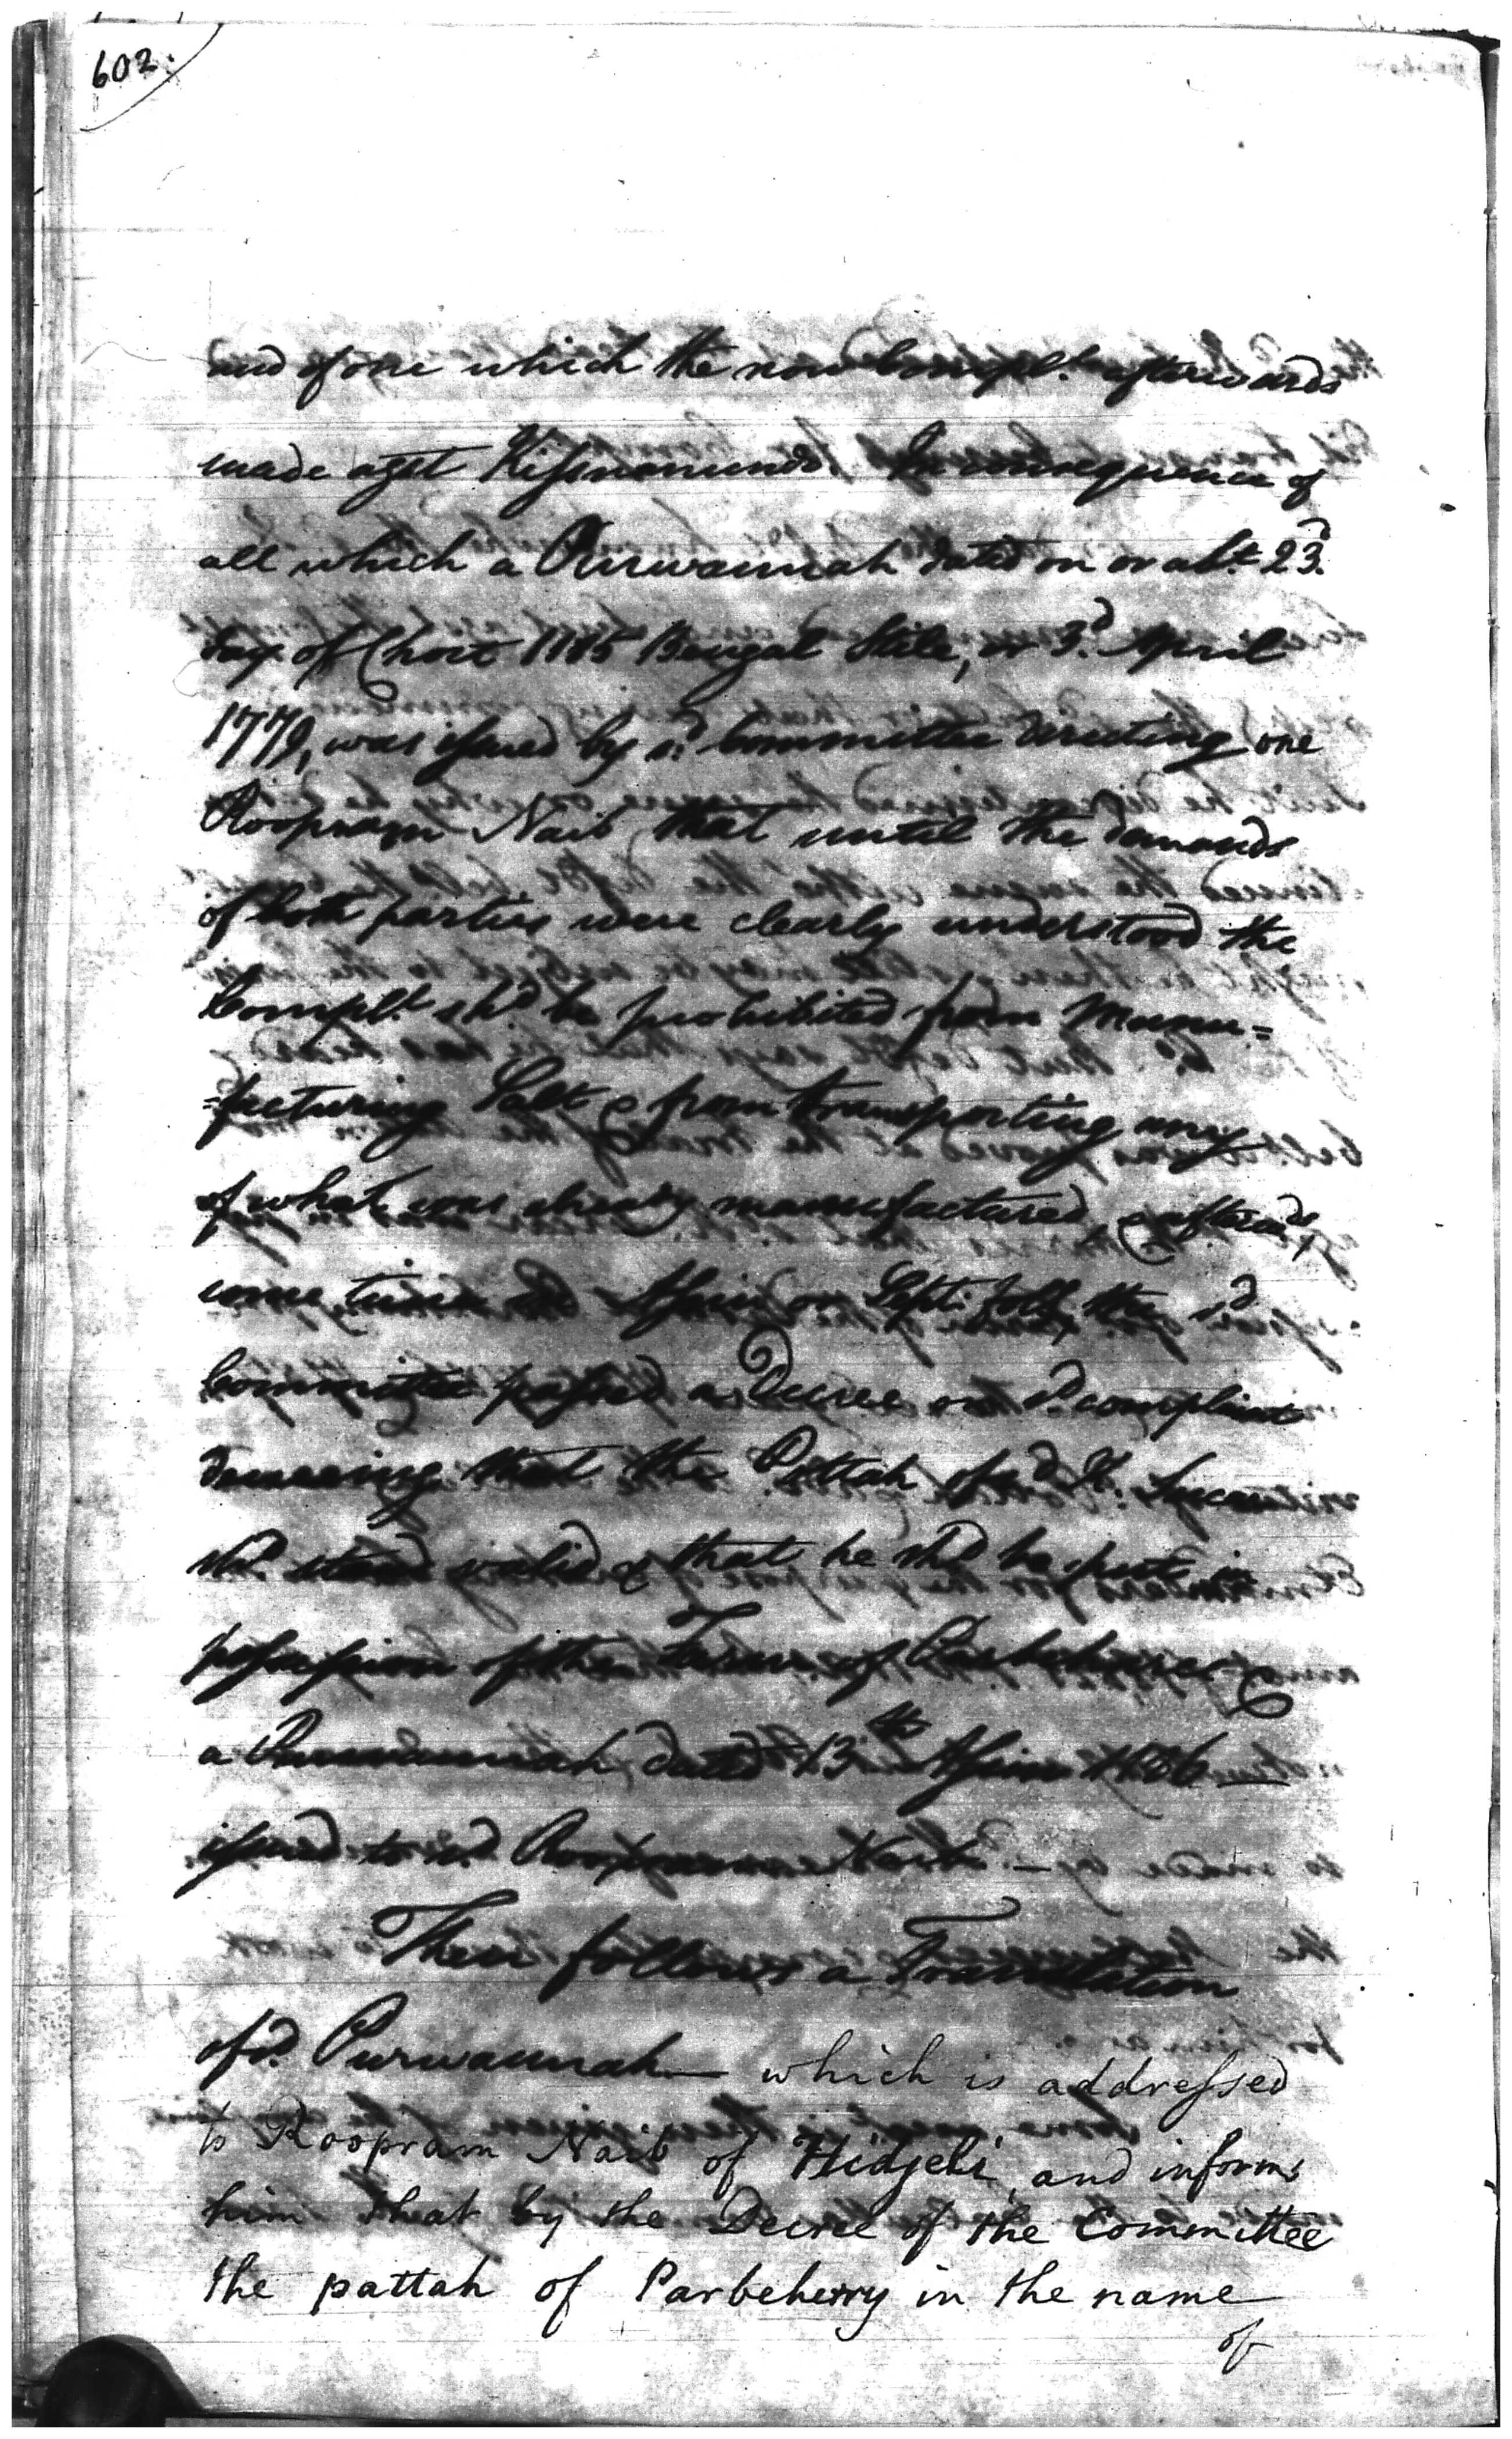 602.
and of one which the now Compl.t afterwards
made agst Kissnanundo. In consequence of
all which a Purwannah dated on or abt. 23.d
day of Choit 1185 Bengal Stile, or 3.d April
1779, was issued by s.d Committee directing one
Roopram Naib that until the demands
of both parties were clearly understood the
Compl.t sh.d be prohibited from Manu=
=facturing Salt & from transporting any
of what was already manufactured, & afterwds
some time in Assin or Sept. foll.g the s.d
Committee passed a Decree on s.d complaint
decreeing that the Pottah of s.d
sh.d stand valid & that he sh.d be put in
possession of the Farm of Parbeherry &
a Purwannah dated 13th Assin 1186
issued to s.d Roopram Naib —
Then follows a Translation
of s.d Purwannah — which is addressed
to Roopram Naib of Hidjeli, and informs
him that by the Decree of the Committee
the pattah of Parbeherry in the name
of